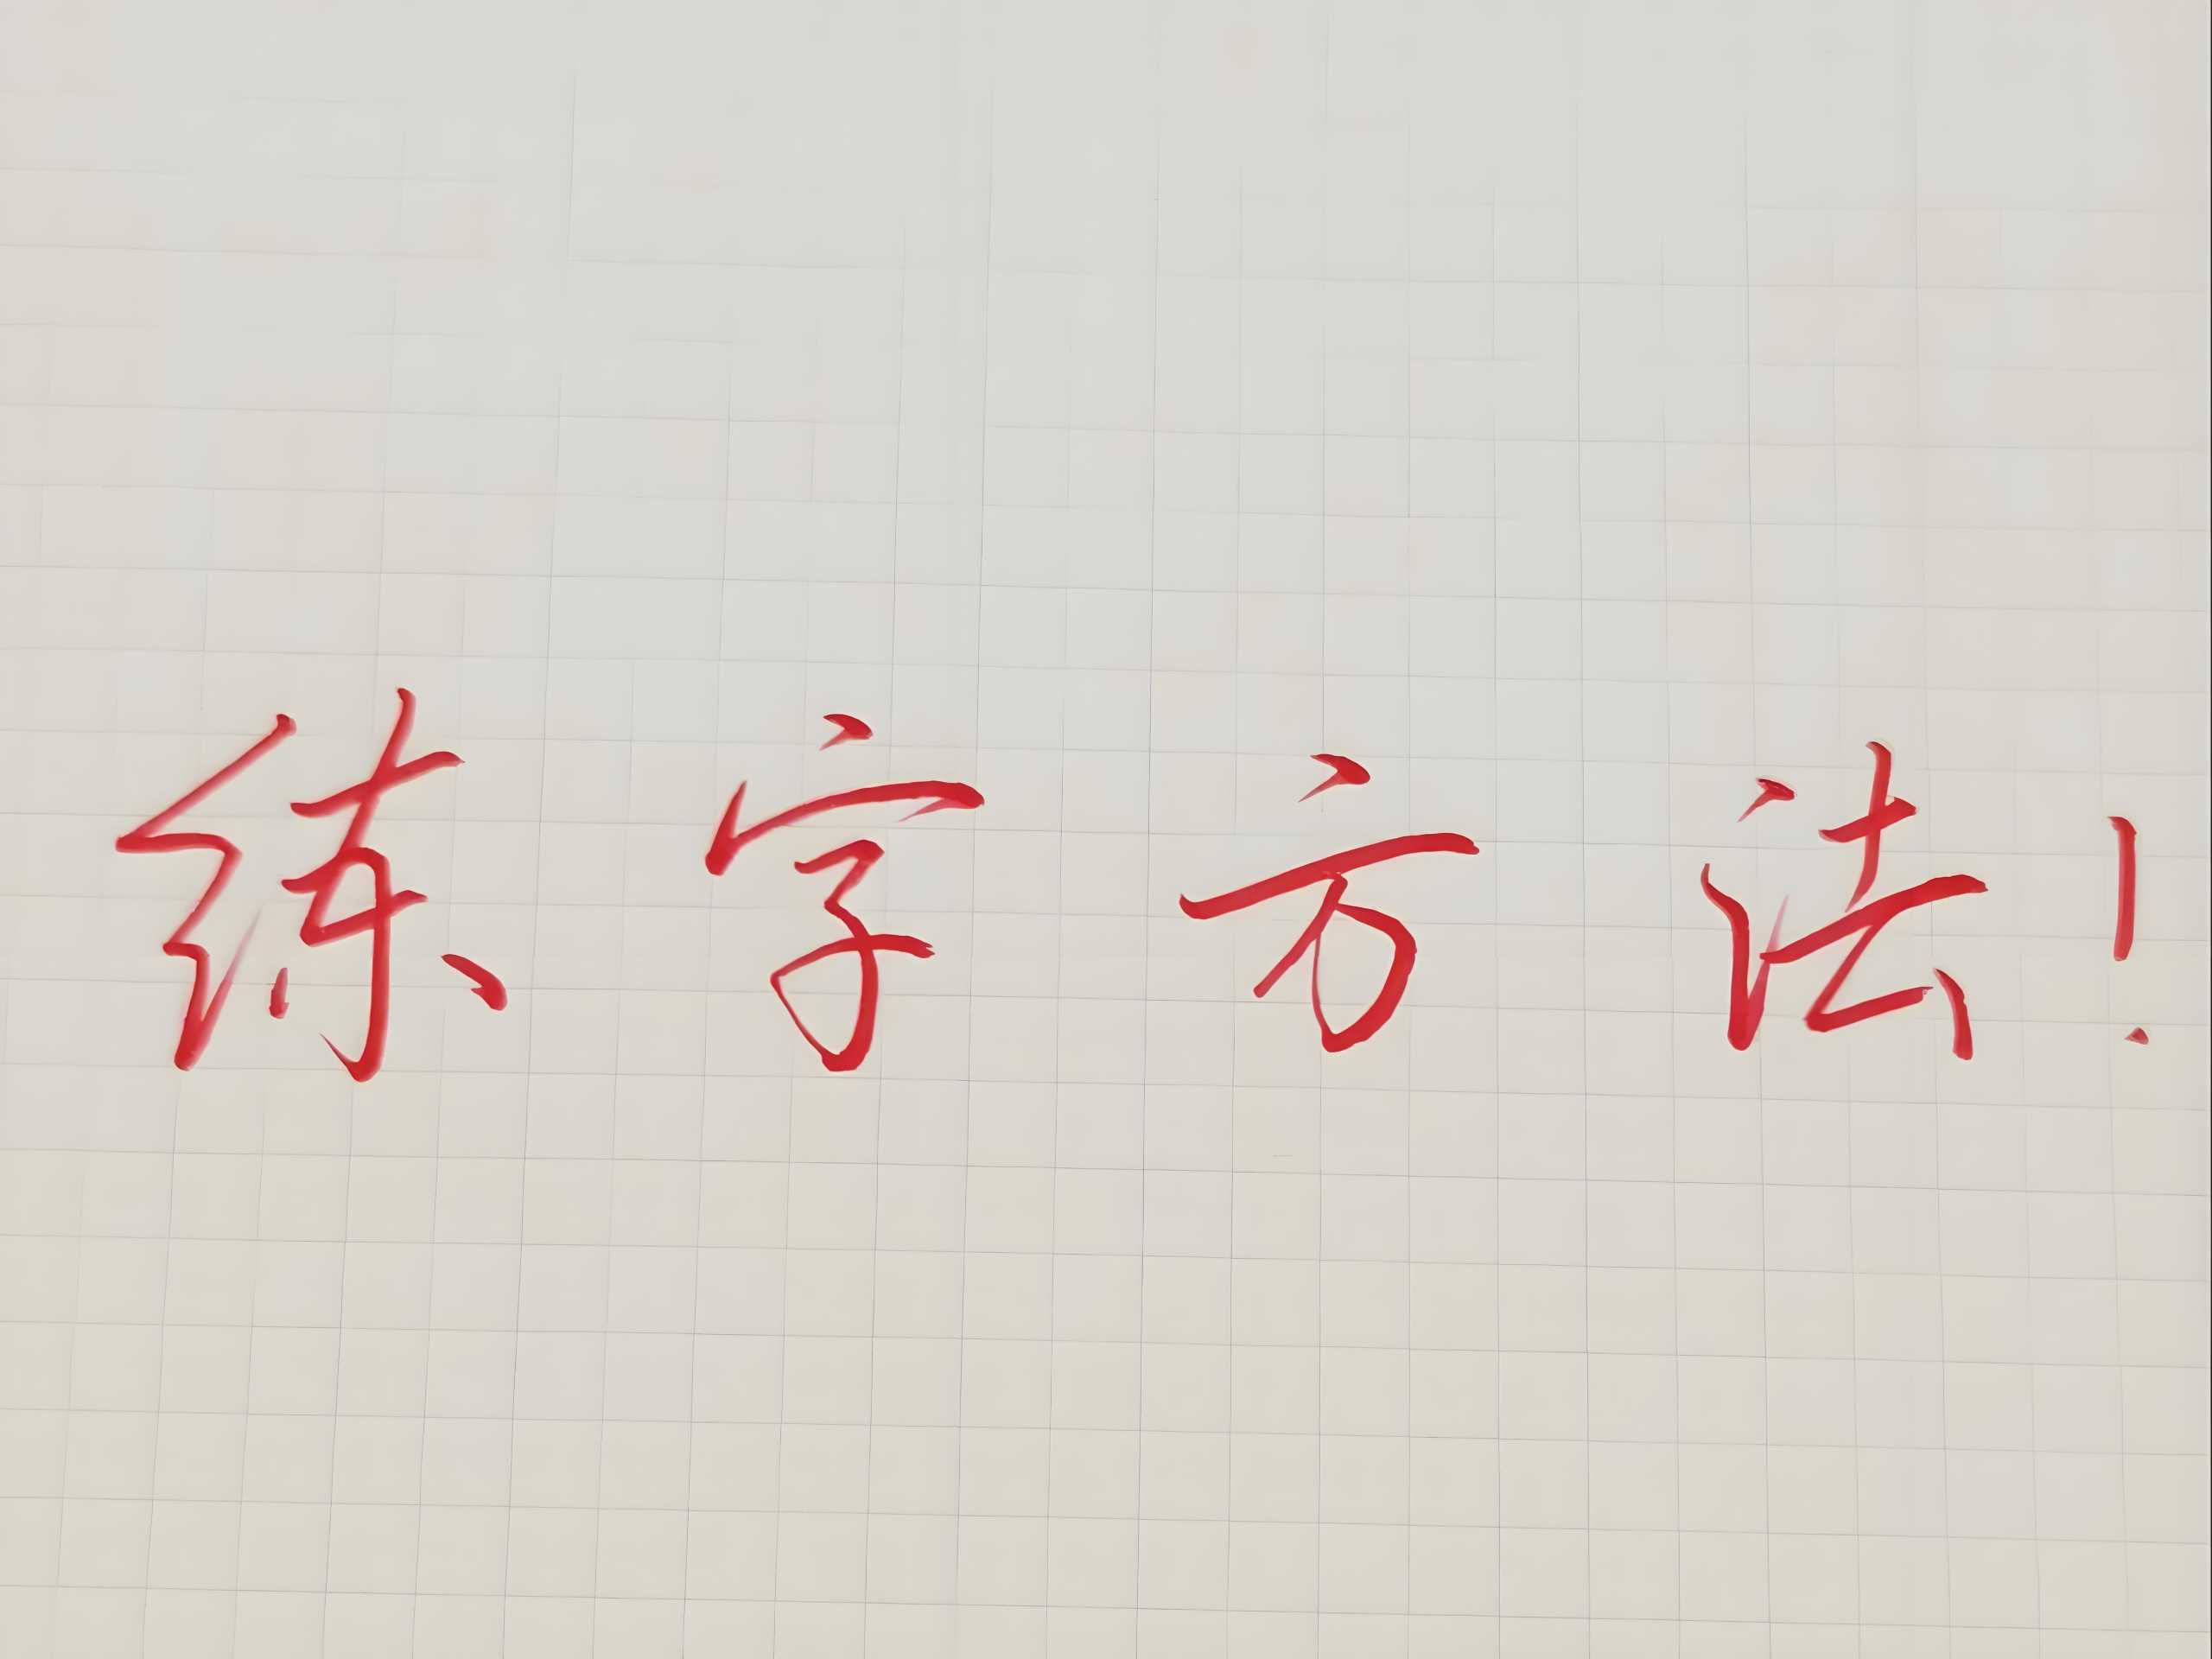 练字方法！